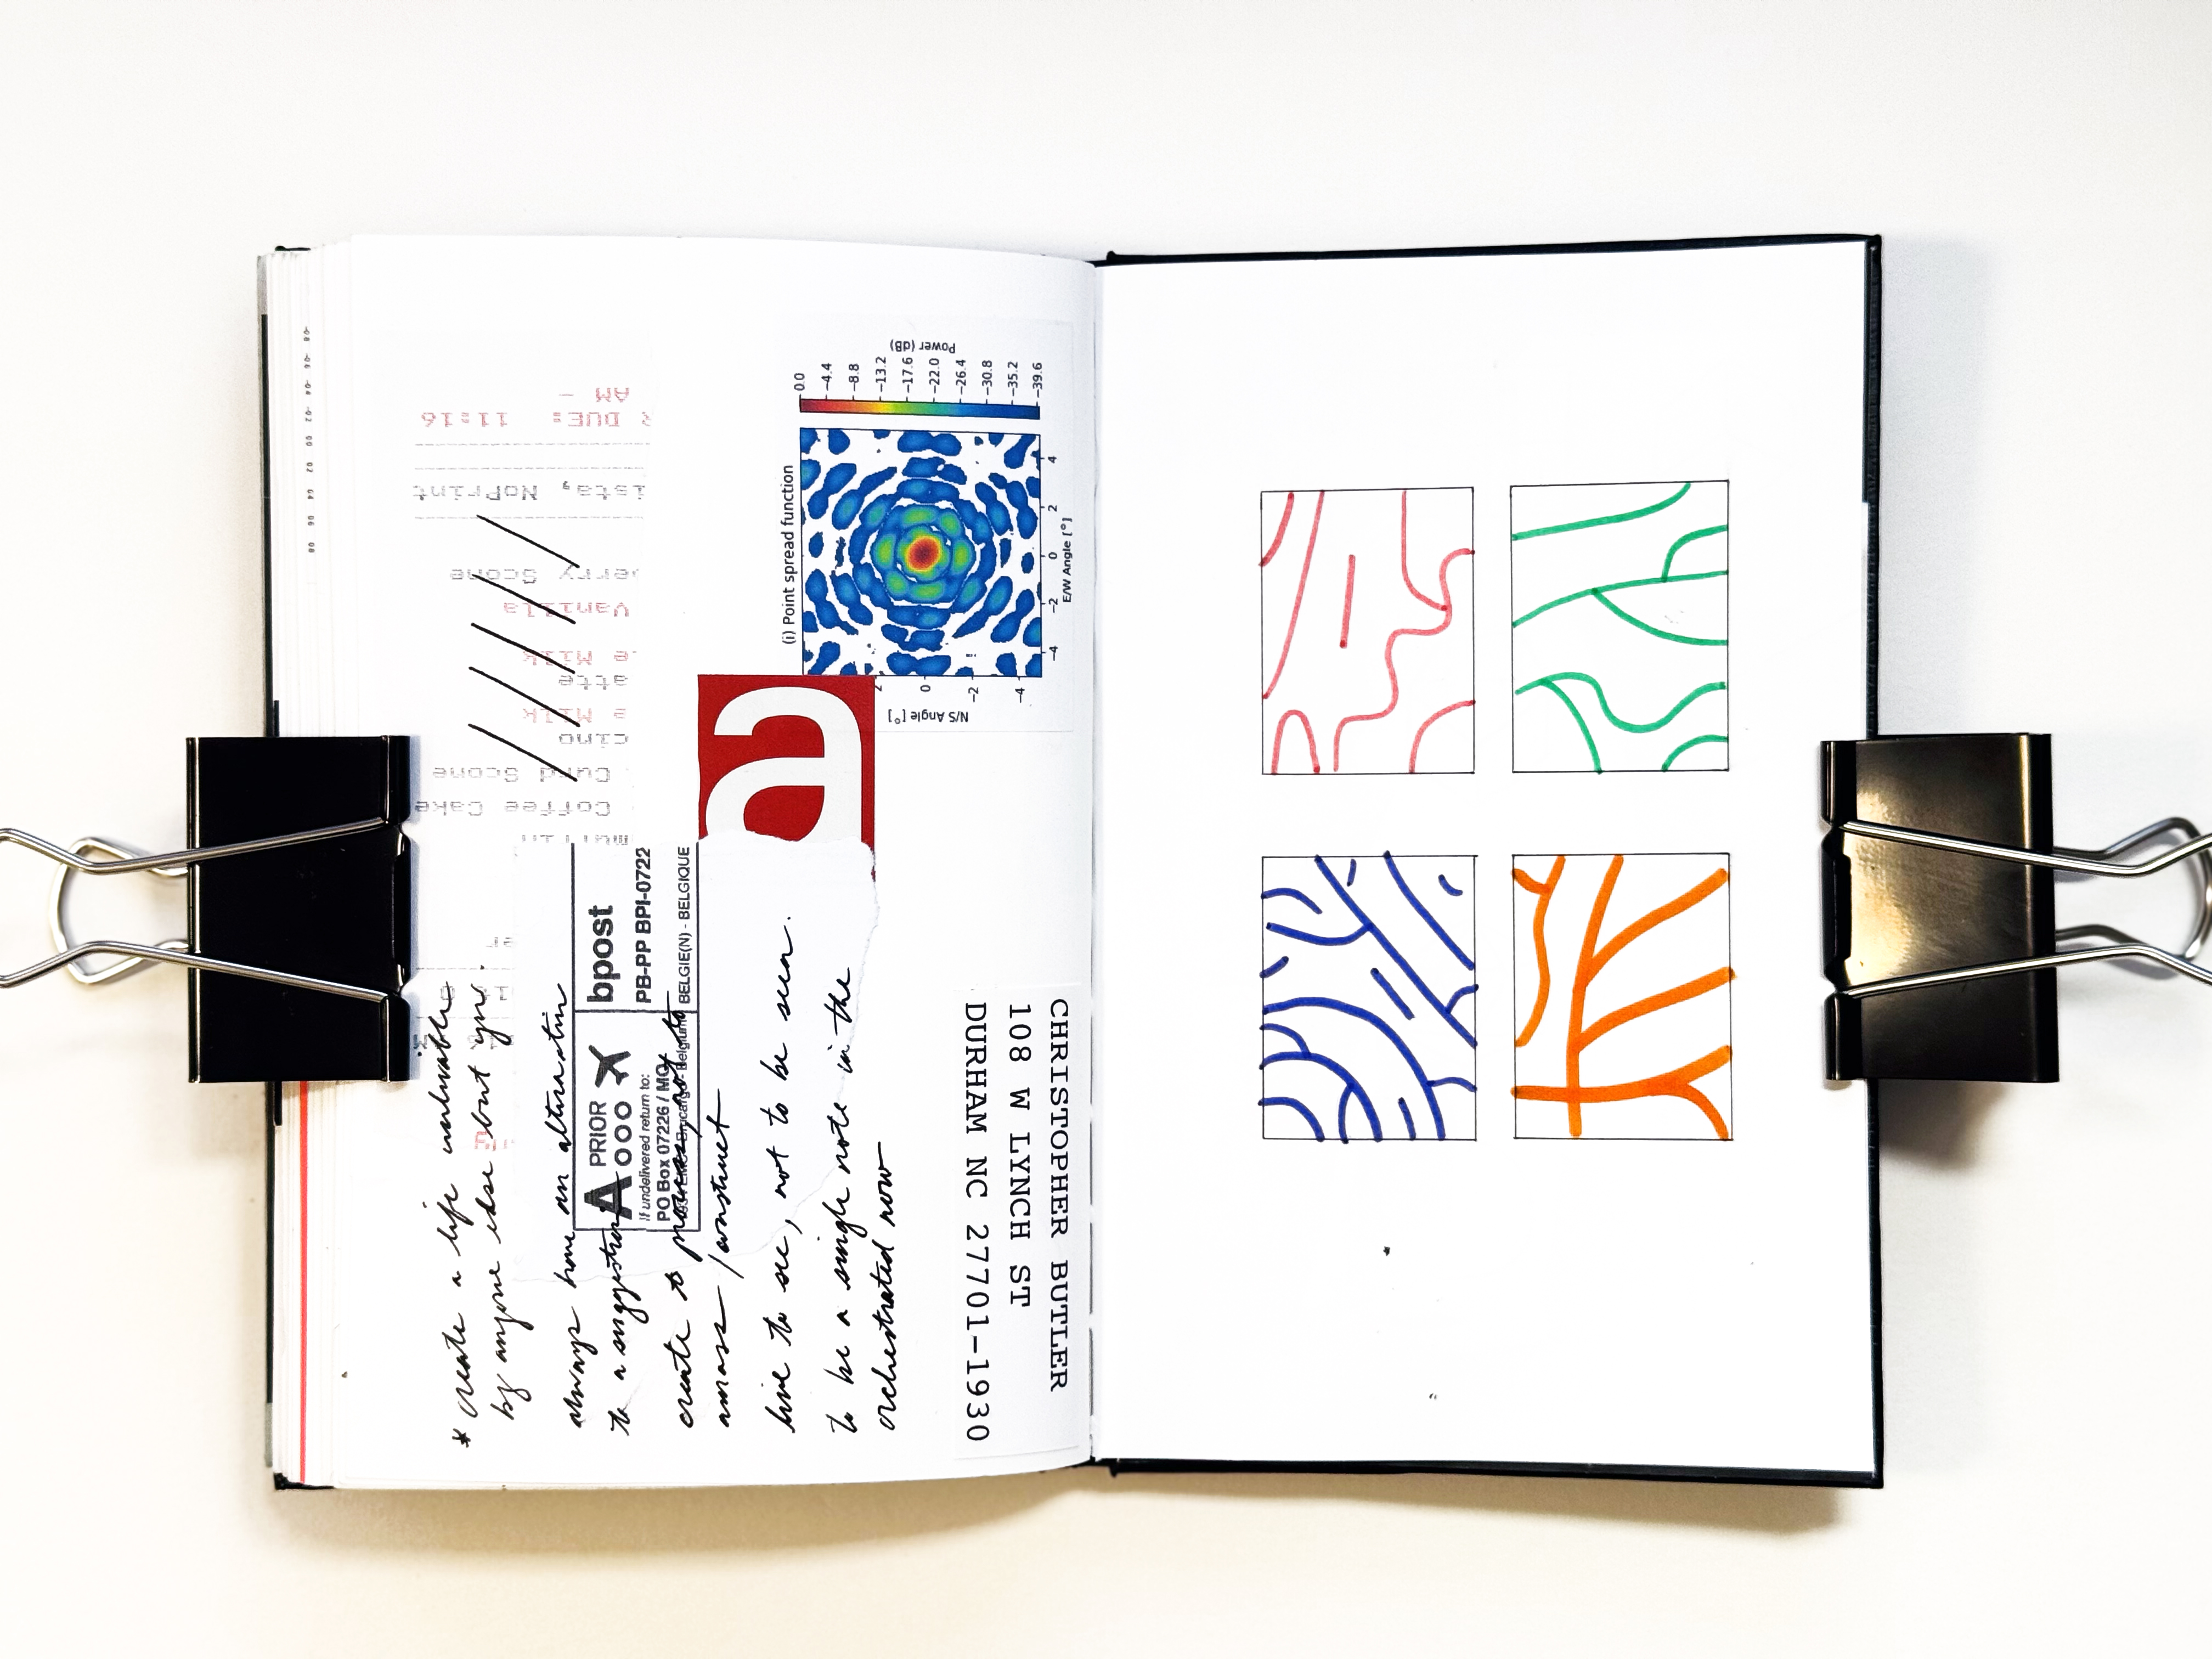 * create a life unlivable
by anyone else but you.
always have an alternative
to a suggestion
create to process, not to
amass / construct
live to see, not to be seen.
to be a single note in the
orchestrated now
bpost
PB-PP BPI-0722
BELGIE(N) - BELGIQUE
A PRIOR
If undelivered return to:
PO Box 07226 / MQ
a
CHRISTOPHER BUTLER
108 W LYNCH ST
DURHAM NC 27701-1930
(i) Point spread function
Power (dB)
0.0
−4.4
−8.8
−13.2
−17.6
−22.0
−26.4
−30.8
−35.2
−39.6
E/W Angle [°]
−4 −2 0 2 4
N/S Angle [°]
2 0 −2 −4
DUE: 11:16
AM -
ista, NoPrint
erry Scone
Vanilla
e Milk
atte
e Milk
cino
Curd Scone
Coffee Cake